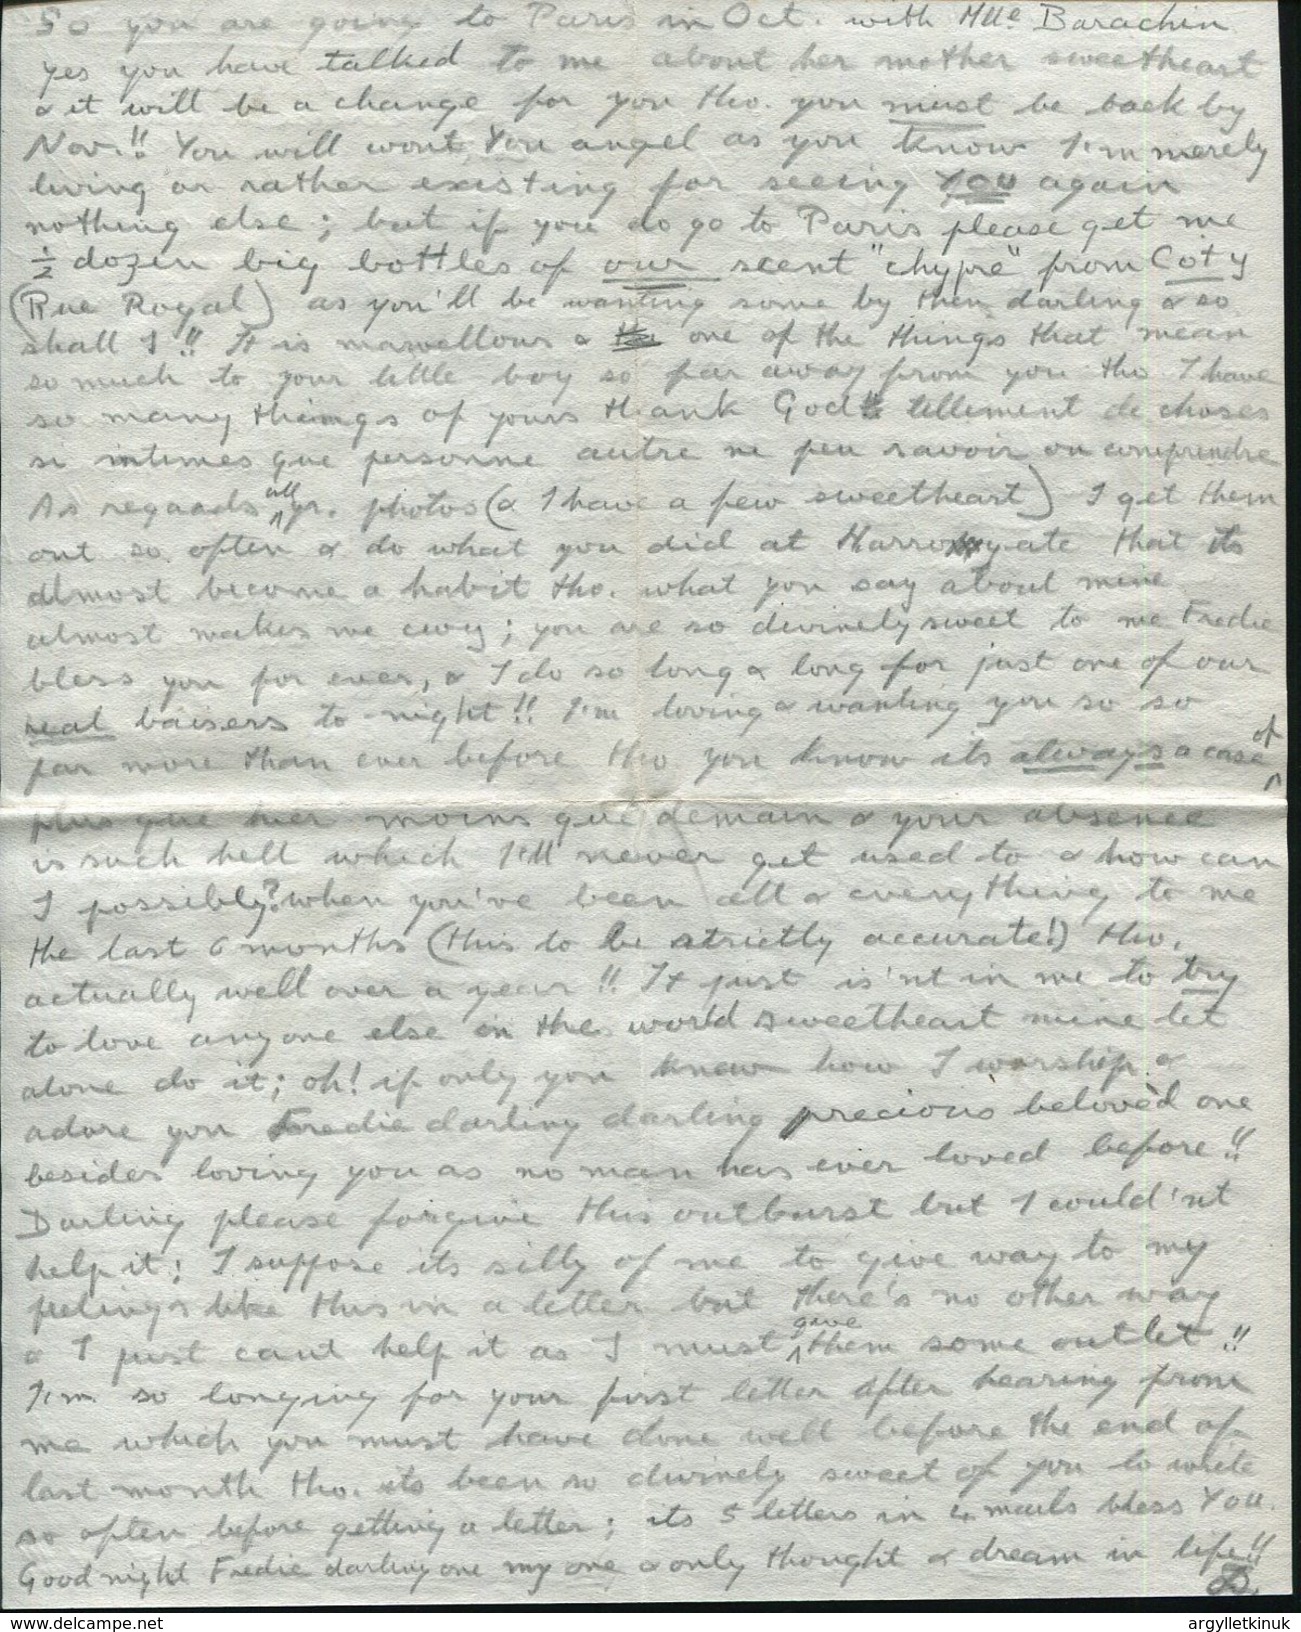 So you are going to Paris in Oct. with Mlle Barachin
yes you have talked to me about her mother sweetheart
& it will be a change for you tho. you must be back by
Nov.!! You will wont You angel as you know I'm merely
living or rather existing for seeing You again
nothing else; but if you do go to Paris please get me
½ dozen big bottles of our scent "chypre" from Coty
(Rue Royal) as you'll be wanting some by then darling & so
shall I!! It is marvellous & one of the things that mean
so much to your little boy so far away from you tho I have
so many things of yours thank God!! tellement de choses
si intimes que personne autre ne peu savoir ou comprendre
As regards all yr. photos (& I have a few sweetheart) I get them
out so often & do what you did at Harrogate that its
almost become a habit tho. what you say about mine
almost makes me cwy; you are so divinely sweet to me Fredie
bless you for ever, & I do so long & long for just one of our
real baisers to-night!! I'm loving & wanting you so so
far more than ever before tho you know its always a case of
plus que hier moins que demain & your absence
is such hell which I'll never get used to & how can
I possibly? when you've been all & everything to me
the last 6 months (this to be strictly accurate!) tho.
actually well over a year!! It just is'nt in me to try
to love anyone else in the world sweetheart mine let
alone do it; oh! if only you knew how I worship &
adore you Fredie darling darling precious beloved one
besides loving you as no man has ever loved before!!
Darling please forgive this outburst but I could'nt
help it; I suppose its silly of me to give way to my
feelings like this in a letter but there's no other way
& I just cant help it as I must give them some outlet!!
I'm so longing for your first letter after hearing from
me which you must have done well before the end of
last month tho. its been so divinely sweet of you to write
so often before getting a letter; its 5 letters in 4 mails bless You.
Good night Fredie darling one my one & only thought & dream in life!!
D.
argylletkinuk